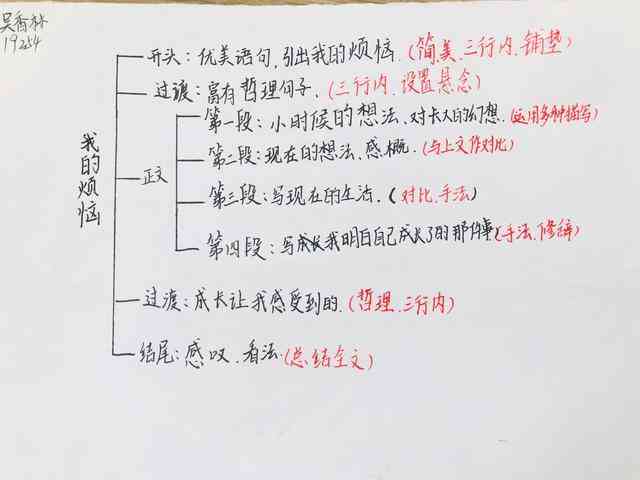 吴香林
19254
我的烦恼
开头：优美语句，引出我的烦恼.（简、美、三行内、铺垫）
过渡：富有哲理句子.（三行内、设置悬念）
正文
第一段：小时候的想法、对长大的幻想.（运用多种描写）
第二段：现在的想法、感概.（与上文作对比）
第三段：写现在的生活.（对比、手法）
第四段：写成长我明白自己成长了的那件事（手法、修辞）
过渡：成长让我感受到的.（哲理、三行内）
结尾：感叹、看法（总结全文）